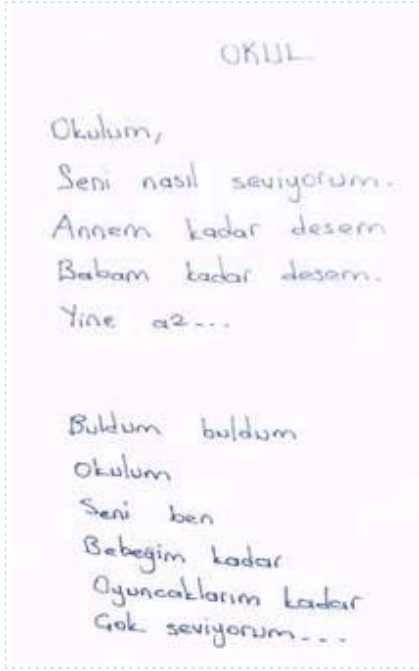 OKUL
Okulum,
Seni nasıl seviyorum.
Annem kadar desem
Babam kadar desem.
Yine az...
Buldum buldum
Okulum
Seni ben
Bebeğim kadar
Oyuncaklarım kadar
Çok seviyorum...